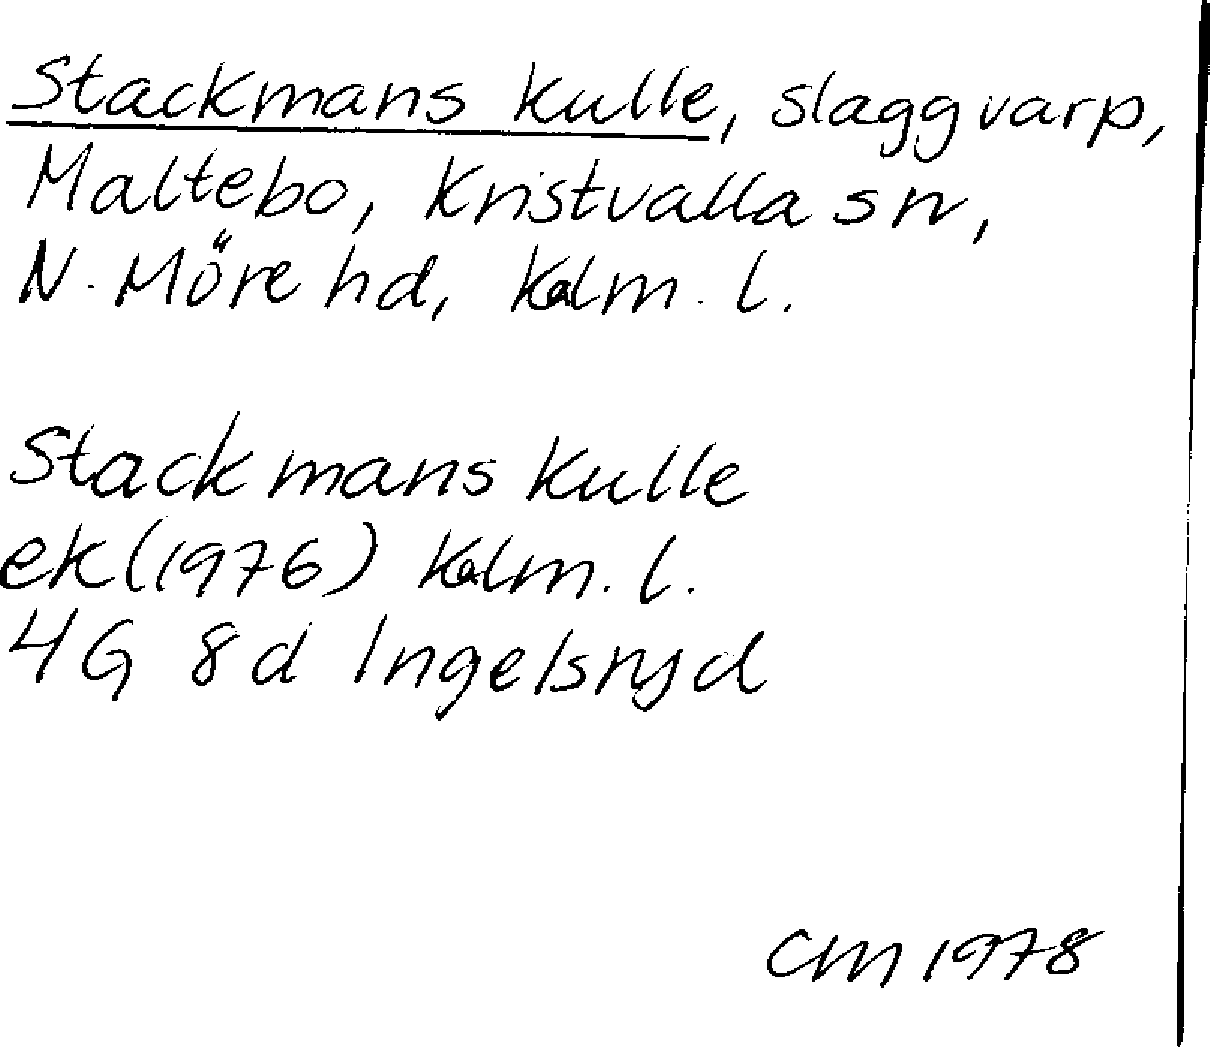 Stackmans kulle, slaggvarp,
Maltebo, Kristvalla sn,
N. Möre hd, Kalm. l.
Stackmans kulle
ek (1976) Kalm. l.
4G 8d Ingelsryd
CM 1978